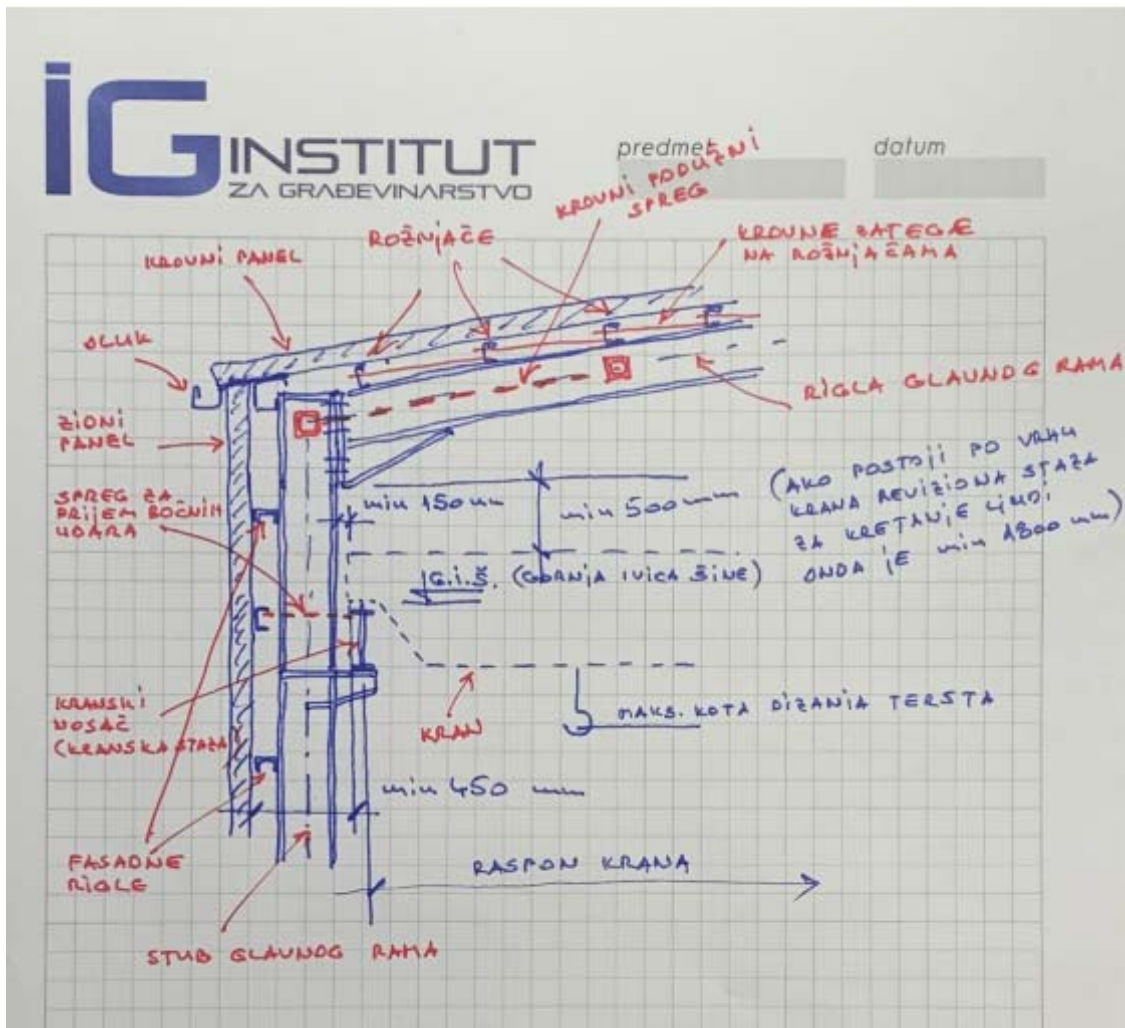 iG INSTITUT
ZA GRAĐEVINARSTVO
predmet
datum
KROVNI PODUŽNI
SPREG
ROŽNJAČE
KROVNE ZATEGE
NA ROŽNJAČAMA
KROVNI PANEL
OLUK
RIGLA GLAVNOG RAMA
ZIDNI
PANEL
SPREG ZA
PRIJEM BOČNIH
UDARA
min 150 mm
min 500 mm
(AKO POSTOJI PO VRHU
KRANA REVIZIONA STAZA
ZA KRETANJE LJUDI
ONDA JE min 1800 mm)
G.I.Š. (GORNJA IVICA ŠINE)
KRANSKI
NOSAČ
(KRANSKA STAZA)
KRAN
MAKS. KOTA DIZANJA TERETA
min 450 mm
FASADNE
RIGLE
RASPON KRANA
STUB GLAVNOG RAMA